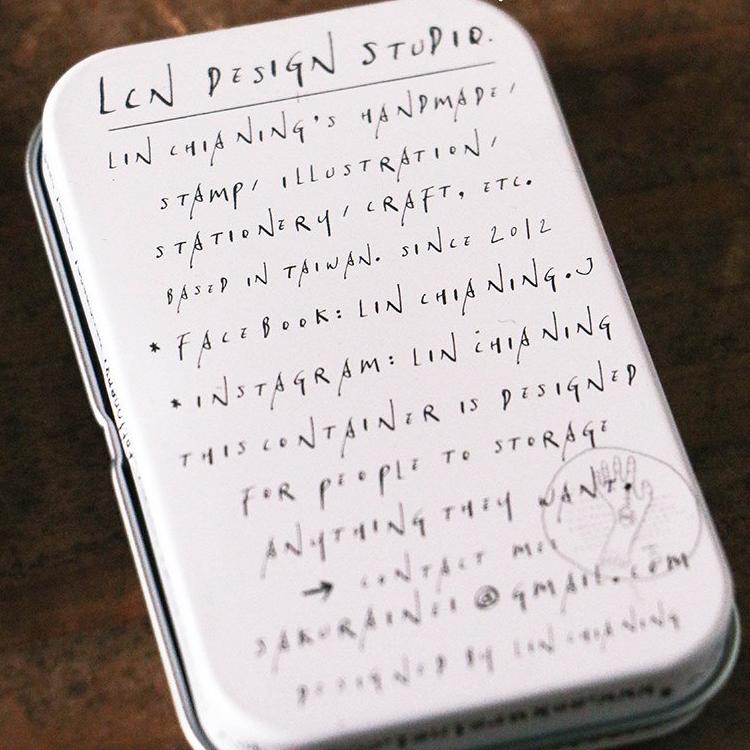 LCN DESIGN STUDIO.
LIN CHIANING'S HANDMADE/
STAMP/ ILLUSTRATION/
STATIONERY/ CRAFT, ETC.
BASED IN TAIWAN. SINCE 2012
* FACEBOOK: LIN CHIANING.J
* INSTAGRAM: LIN CHIANING
THIS CONTAINER IS DESIGNED
FOR PEOPLE TO STORAGE
ANYTHING THEY WANT.
→ CONTACT ME:
@GMAIL.COM
DESIGNED BY LIN CHIANING